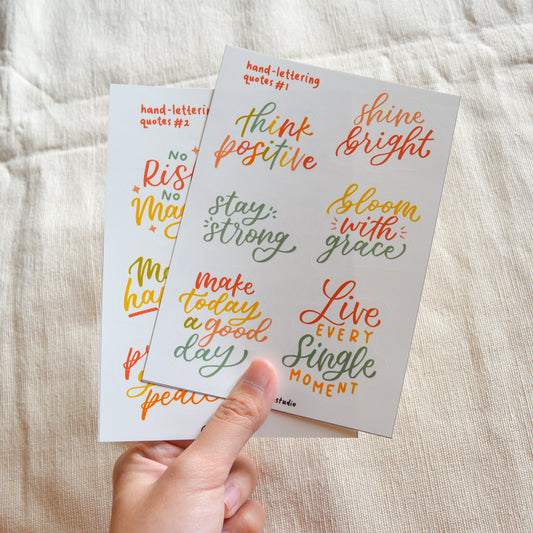 hand-lettering
quotes #1
think
positive
shine
bright
stay
strong
bloom
with
grace
make
today
a good
day
Live
EVERY
Single
MOMENT
studio
hand-lettering
quotes #2
NO
NO
peace